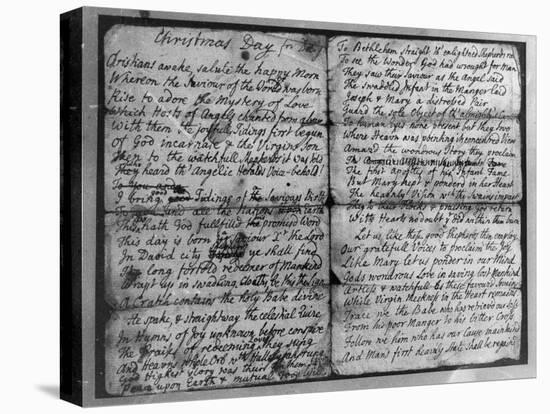 Christmas Day for Dolly
Christians awake, salute the happy Morn
Whereon the Saviour of the World was born
Rise to adore the Mystery of Love
Which Hosts of Angels chanted from above
With them the joyfull Tidings first begun
of God incarnate & the Virgins Son
Then to the watchfull Shepherds it was told
Who heard th' Angelic Herald's Voice - behold!
I bring good Tidings of a Saviours Birth
To you and all the Nations upon Earth
This day hath God fullfill'd the promis'd Word
This day is born a Saviour the Lord
In David's city Shepherds ye shall find
The long foretold redeemer of Mankind
Wrapt up in swadling Cloaths, be this the sign
A Cratch contains the Holy Babe divine
He spoke, & straightway the celestial Quire
In Hymns of Joy unknown before conspire
The Praises of redeeming Love they sung
And Heavns whole Orb with Hallelujahs rung
God's Highest Glory was their Anthem still
Peace upon Earth & mutual Good Will
To Bethlehem straight th' enlightned Shepherds ran
To see the Wonder God had wrought for Man
They saw their Saviour as the Angel said
The Swadled Infant in the Manger laid
Joseph & Mary a distressed Pair
Guard the sole Object of th' almighty's Care
To human eyes none present but they two
Where Heavn was
Amaz'd the wondrous Story they proclaim
The first Apostles of his Infant Fame
But Mary kept & ponder'd in her Heart
The heav'nly Vision which the Swains impart
They to their Flocks & praising God return
With Hearts no doubt that did within them burn
Let us like these good Shepherds then employ
Our gratefull Voices to proclaim the Joy
Like Mary let us ponder in our Mind
Gods wondrous Love in saving lost Mankind
Artless & watchfull as these favour'd Swains
While Virgin Meekness in the Heart remains
Trace we the Babe who has retriev'd our Loss
From his poor Manger to his bitter Cross
Follow we him who has our Cause maintain'd
And Man's first heavenly State shall be regain'd